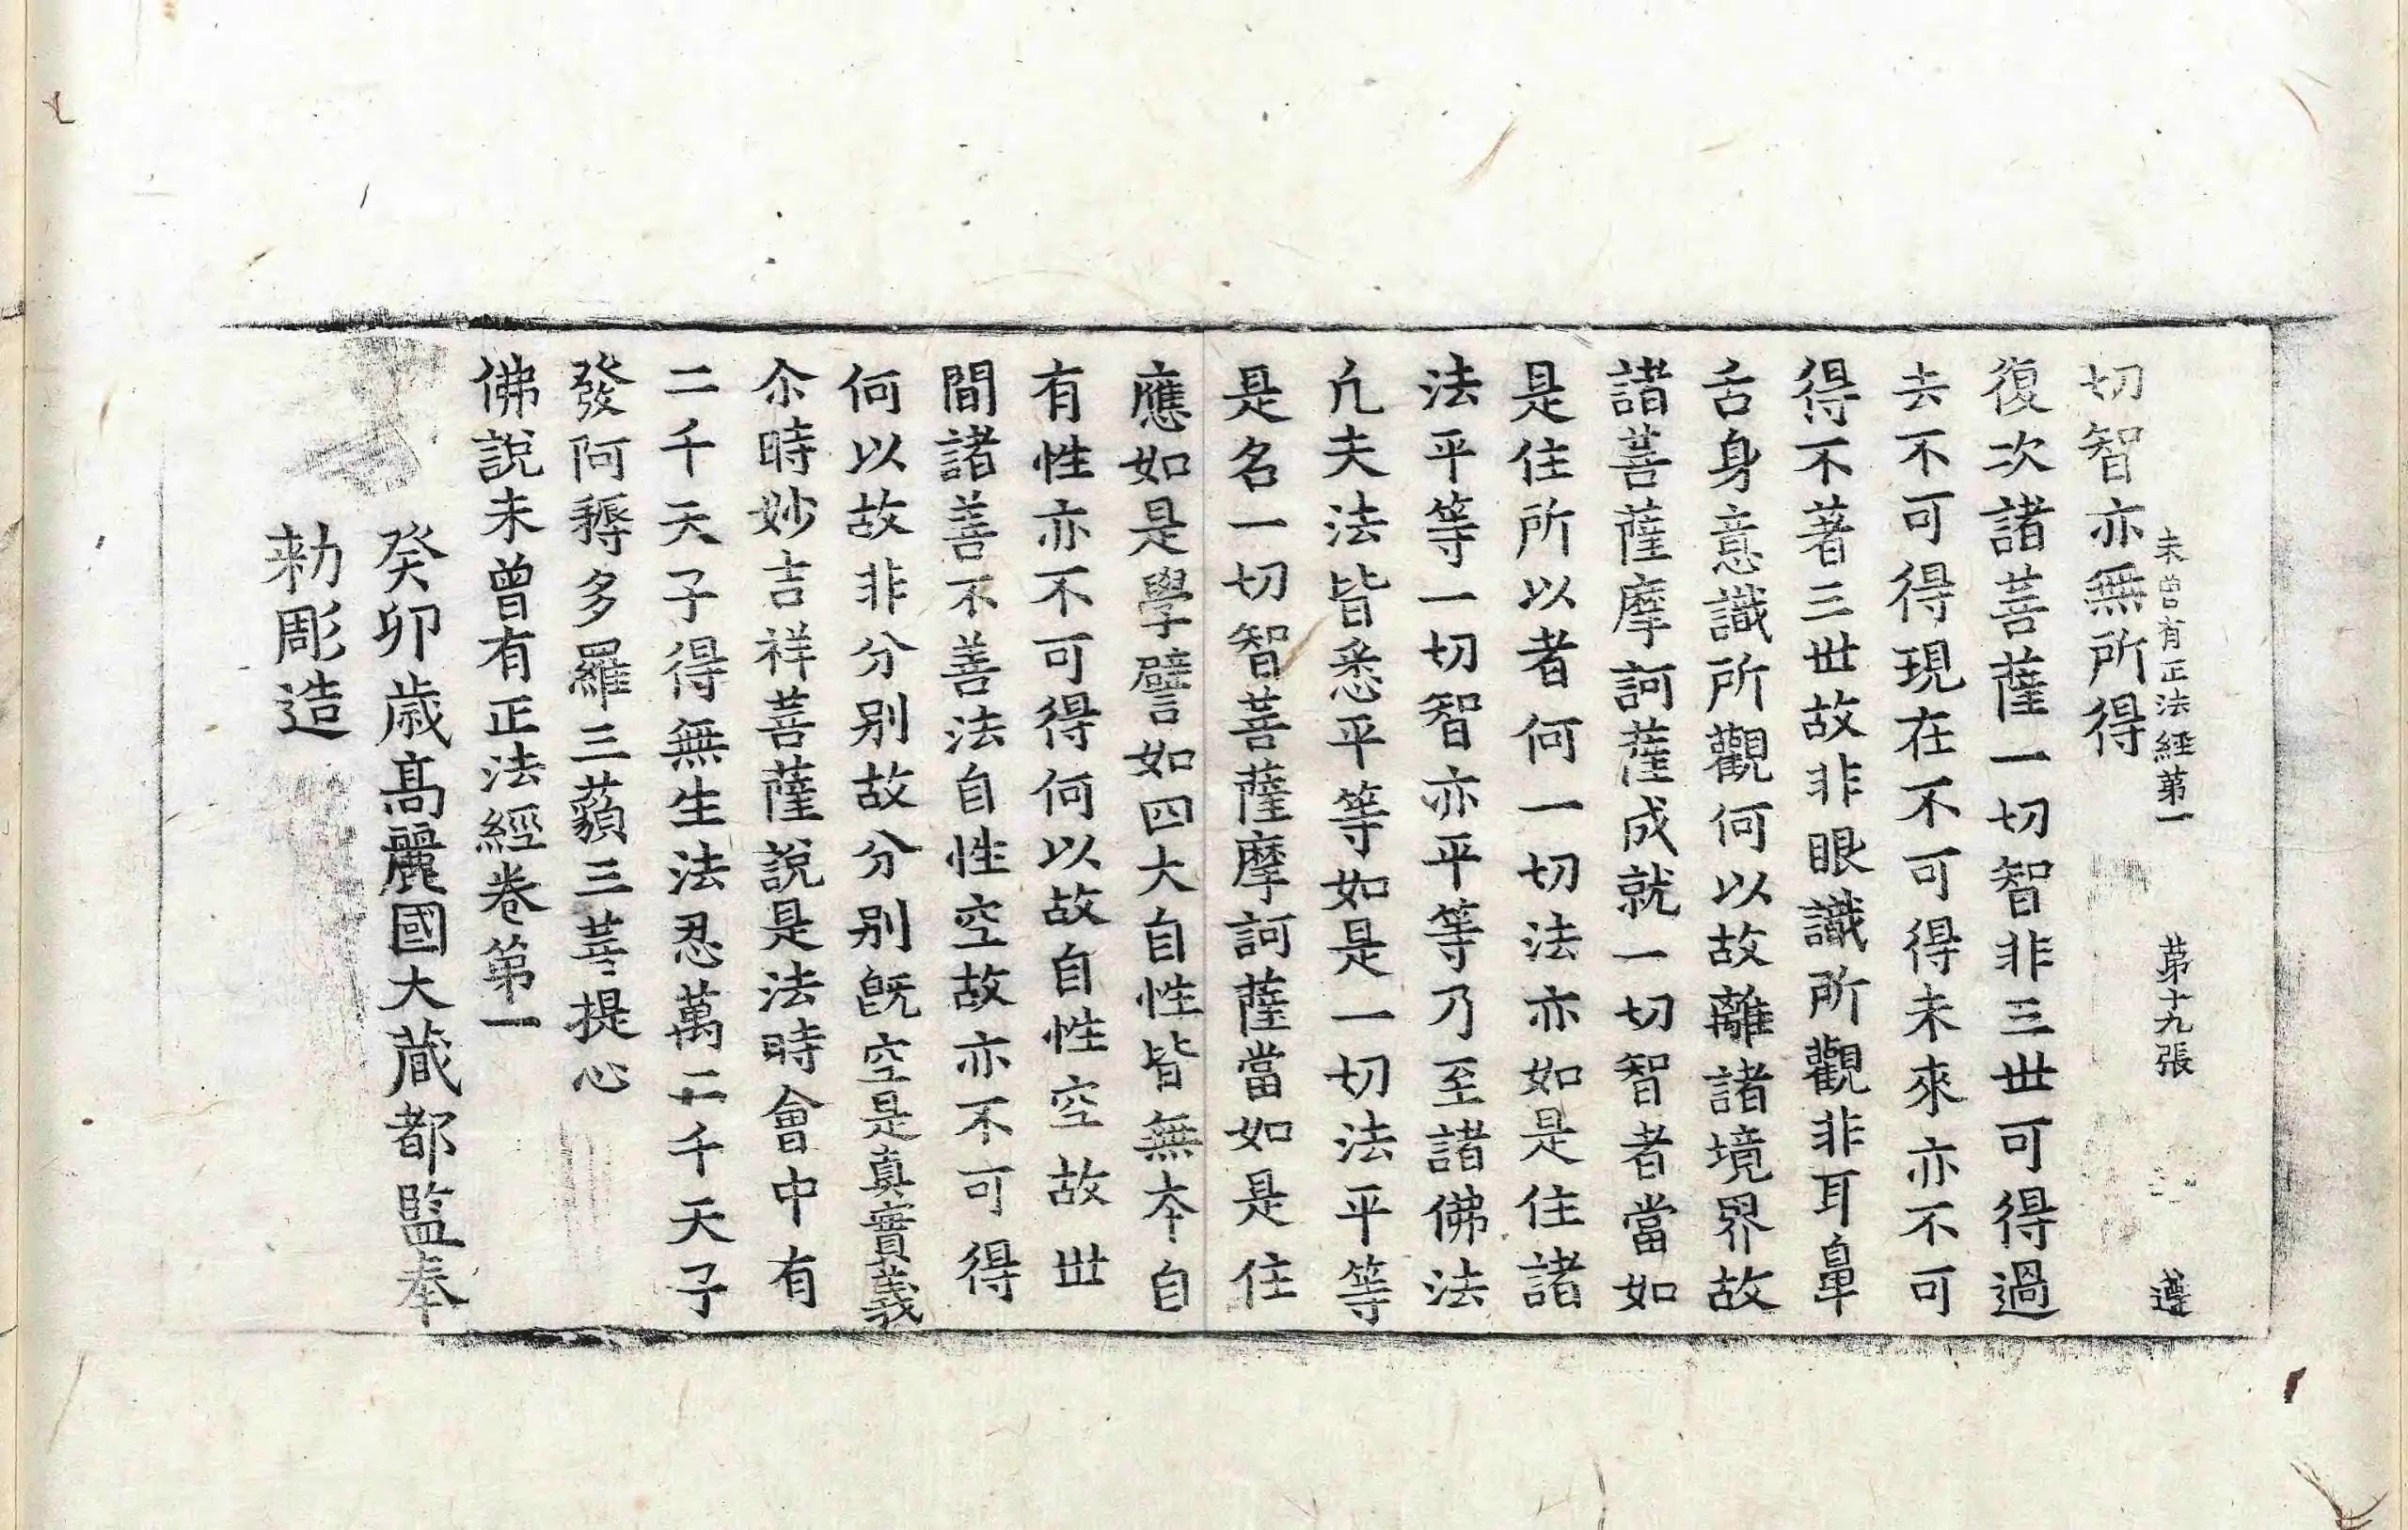 未曾有正法經第一 第十九張 遵
切智亦無所得
復次諸菩薩一切智非三世可得過
去不可得現在不可得未來亦不可
得不著三世故非眼識所觀非耳鼻
舌身意識所觀何以故離諸境界故
諸菩薩摩訶薩成就一切智者當如
是住所以者何一切法亦如是住諸
法平等一切智亦平等乃至諸佛法
凢夫法皆悉平等如是一切法平等
是名一切智菩薩摩訶薩當如是住
應如是學譬如四大自性皆無夲自
有性亦不可得何以故自性空故世
間諸善不善法自性空故亦不可得
何以故非分別故分別旣空是真實義
尒時妙吉祥菩薩說是法時會中有
二千天子得無生法忍萬二千天子
發阿耨多羅三藐三菩提心
佛說未曾有正法經卷第一
癸卯歲高麗國大藏都監奉
勅彫造